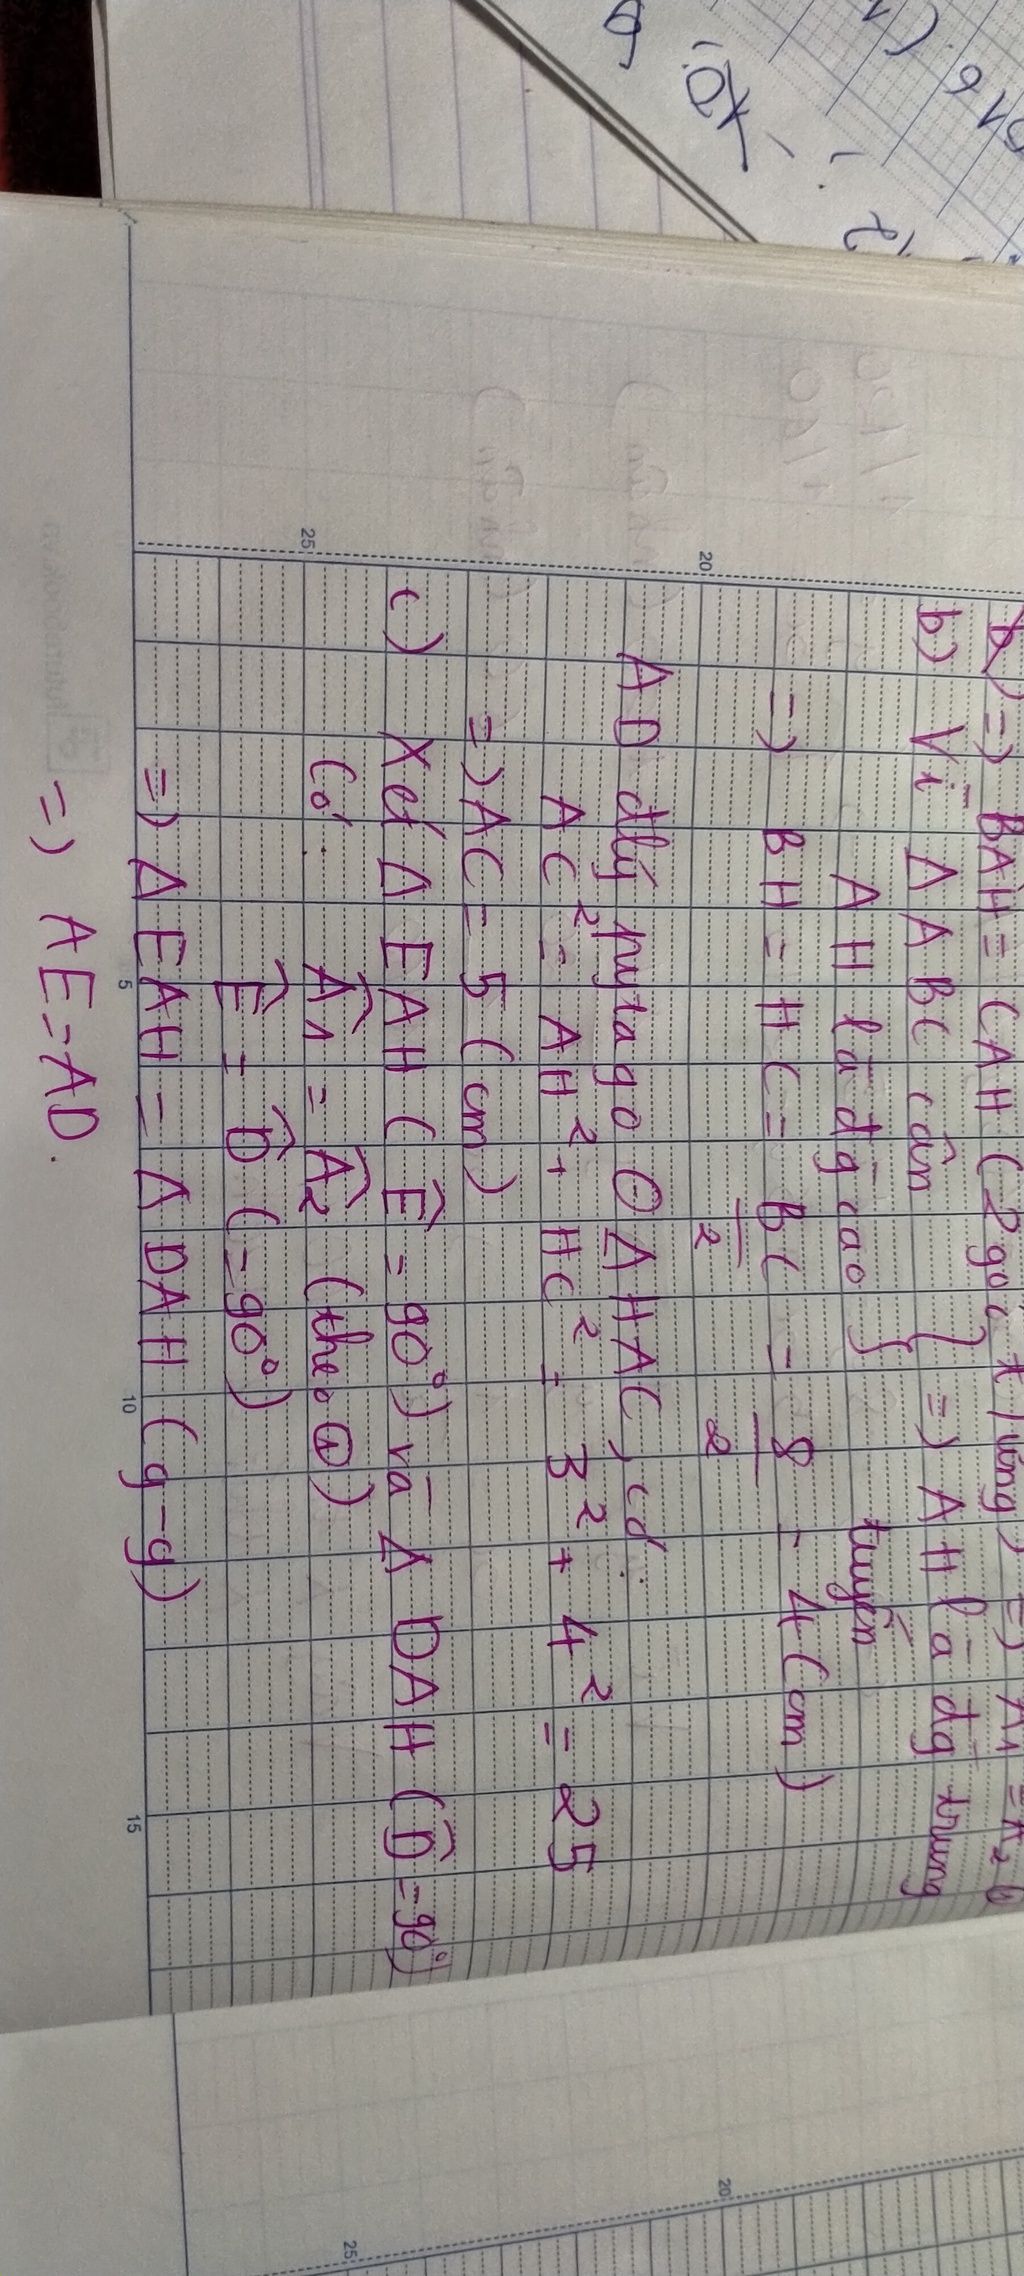 b) => BAH = CAH (2 góc tương) => Â1 = Â2 ①
b) Vì Δ ABC cân
AH là đg cao } => AH là đg trung
tuyến
=> BH = HC = BC/2 = 8/2 = 4 (cm)
AD đlý pytago ⊙ Δ HAC, có:
AC² = AH² + HC² = 3² + 4² = 25
=> AC = 5 (cm)
c) Xét Δ EAH (Ê = 90°) và Δ DAH (D̂ = 90°)
Có: Â1 = Â2 (theo ①)
Ê = D̂ (= 90°)
=> Δ EAH = Δ DAH (g-g)
=> AE = AD.
20
25
5
10
15
20
25